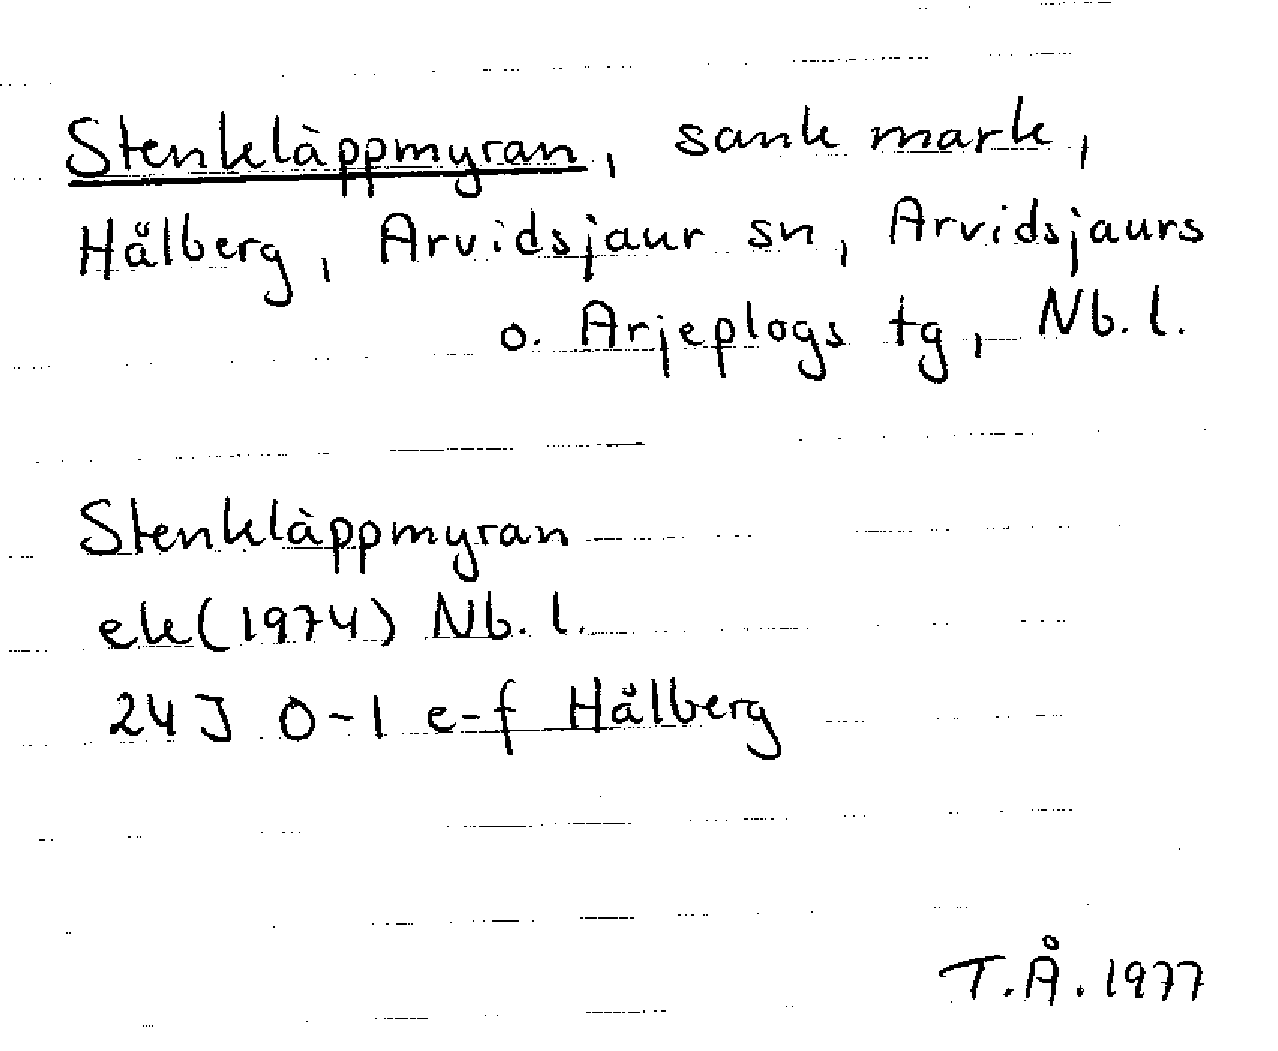 Stenkläppmyran, sank mark,
Hålberg, Arvidsjaur sn, Arvidsjaurs
o. Arjeplogs tg, Nb. l.
Stenkläppmyran
ek (1974) Nb. l.
24J 0-1 e-f Hålberg
T.Å. 1977